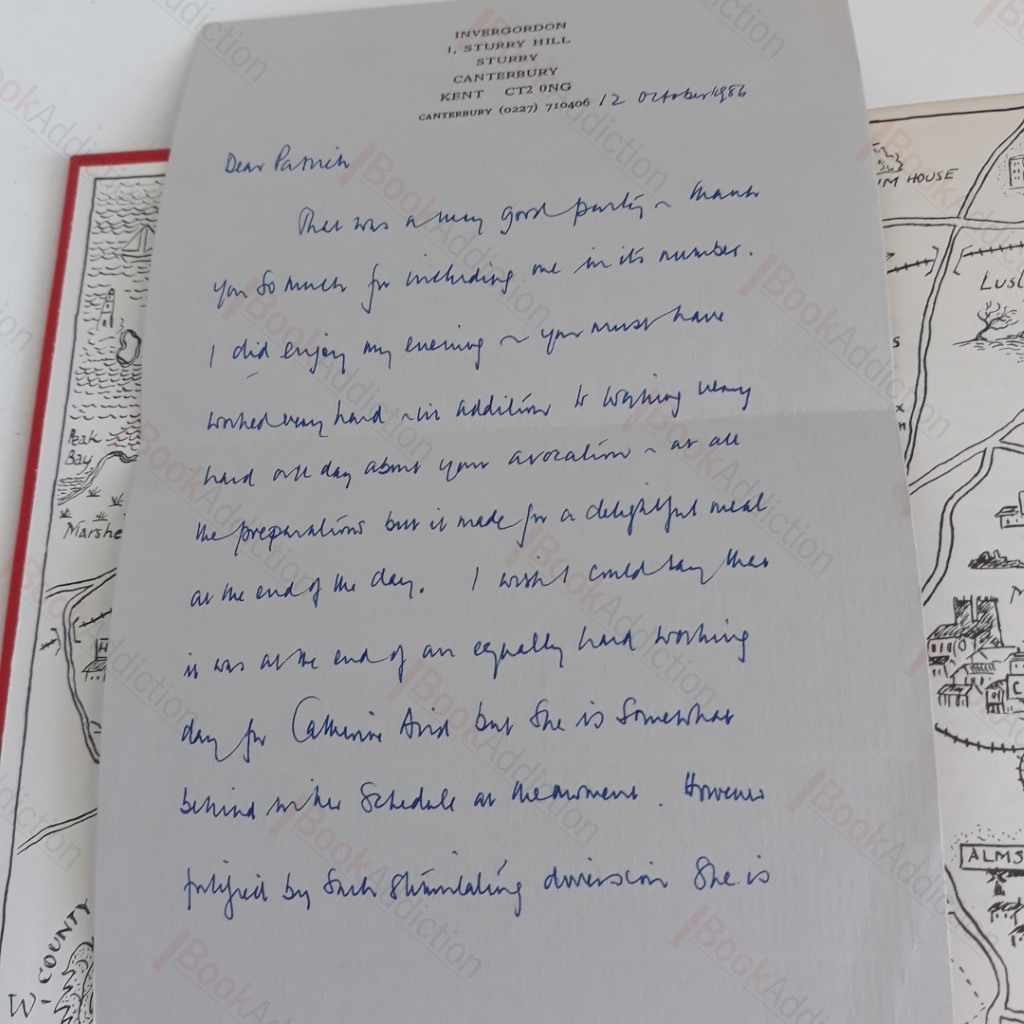 INVERGORDON
1, STURRY HILL
STURRY
CANTERBURY
KENT CT2 0NG
CANTERBURY (0227) 710406 12 October 1986
Dear Patrick
That was a very good party ~ thank
you so much for including me in its number.
I did enjoy my evening ~ you must have
worked very hard ~ in addition to working very
hard all day about your avocation ~ at all
the preparations but it made for a delightful meal
at the end of the day. I wish I could say that
it was at the end of an equally hard working
day for Catherine Aird but she is somewhat
behind in her schedule at the moment. However
fortified by such stimulating diversion she is
Peak
Bay
Marshe
W-COUNTY
UM HOUSE
LUSL
ALMS
BookAddiction